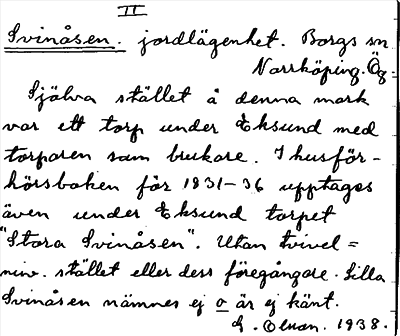 II
Svinåsen. jordlägenhet. Borgs sn
Norrköping. Ög.
Själva stället å denna mark
var ett torp under Eksund med
torparen som brukare. I husför-
hörsboken för 1831-36 upptages
även under Eksund torpet
"Stora Svinåsen". Utan tvivel =
nuv. stället eller dess föregångare. Lilla
Svinåsen nämnes ej o är ej känt.
1938.